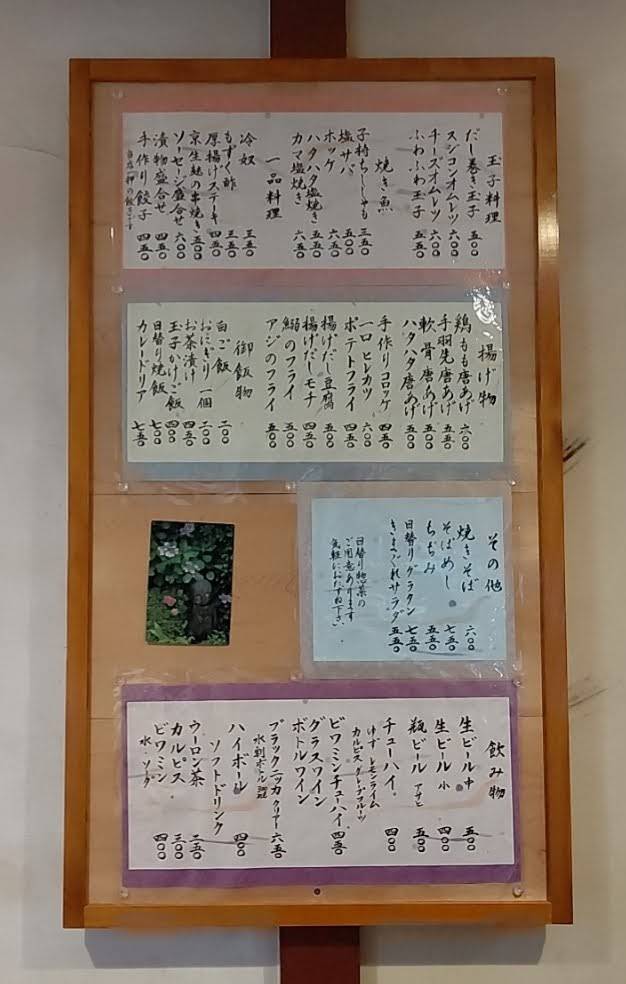 玉子料理
だし巻き玉子 五〇〇
スジコンオムレツ 六〇〇
チーズオムレツ 六〇〇
ふわふわ玉子 五五〇
焼き魚
子持ちししゃも 三五〇
塩サバ 五〇〇
ホッケ 六五〇
ハタハタ塩焼き 五五〇
カマ塩焼き 六五〇
一品料理
冷奴 三五〇
もずく酢 三五〇
厚揚げステーキ 四五〇
京生麩の串焼き 五〇〇
ソーセージ盛合せ 六〇〇
漬物盛合せ 四五〇
手作り餃子 四五〇
揚げ物
鶏もも唐あげ 六〇〇
手羽先唐あげ 五五〇
軟骨唐あげ 五〇〇
ハタハタ唐あげ 五五〇
手作りコロッケ 四五〇
一口ヒレカツ 六〇〇
ポテトフライ 四五〇
揚げだし豆腐 五〇〇
揚げだしモチ 四五〇
鰯のフライ 五〇〇
アジのフライ 五〇〇
御飯物
白ご飯 二〇〇
おにぎり 一個 二〇〇
お茶漬け 四五〇
玉子かけご飯 四〇〇
日替り焼飯 七〇〇
カレードリア 七五〇
その他
焼きそば 六〇〇
そばめし 七五〇
ちぢみ 五五〇
日替りグラタン 七五〇
きまぐれサラダ 五五〇
日替り惣菜の
ご用意あります
気軽におたずね下さい
飲み物
生ビール 中 五〇〇
生ビール 小 四〇〇
瓶ビール アサヒ 五〇〇
チューハイ 四〇〇
ゆず レモン ライム
カルピス グレープフルーツ
ビワミンチューハイ 四五〇
グラスワイン
ボトルワイン
ブラックニッカ クリアー 六五〇
水割ボトル
ハイボール 四〇〇
ソフトドリンク
ウーロン茶 二五〇
カルピス 三〇〇
ビワミン 四〇〇
水・ソーダ